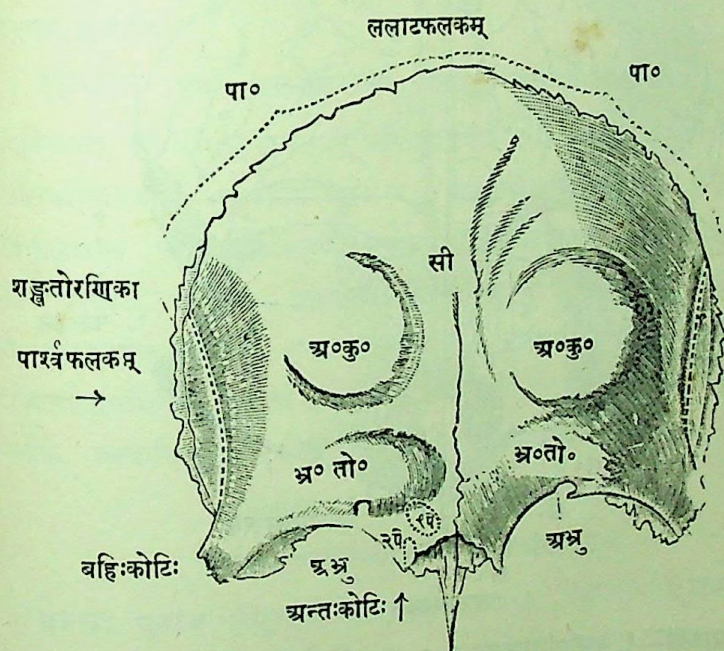 ललाटफलकम्
पा०
पा०
सी
शङ्खतोरणिका
पार्श्वफलकम्
अ०कु०
अ०कु०
भ्र० तो०
भ्र०तो०
१पे
२पे
बहिःकोटिः
अन्तःकोटिः